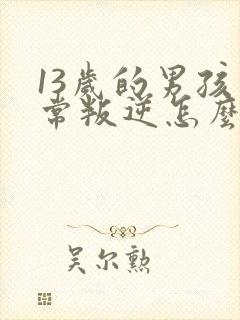 13歲的男孩
常叛逆怎麼
吴尔勲